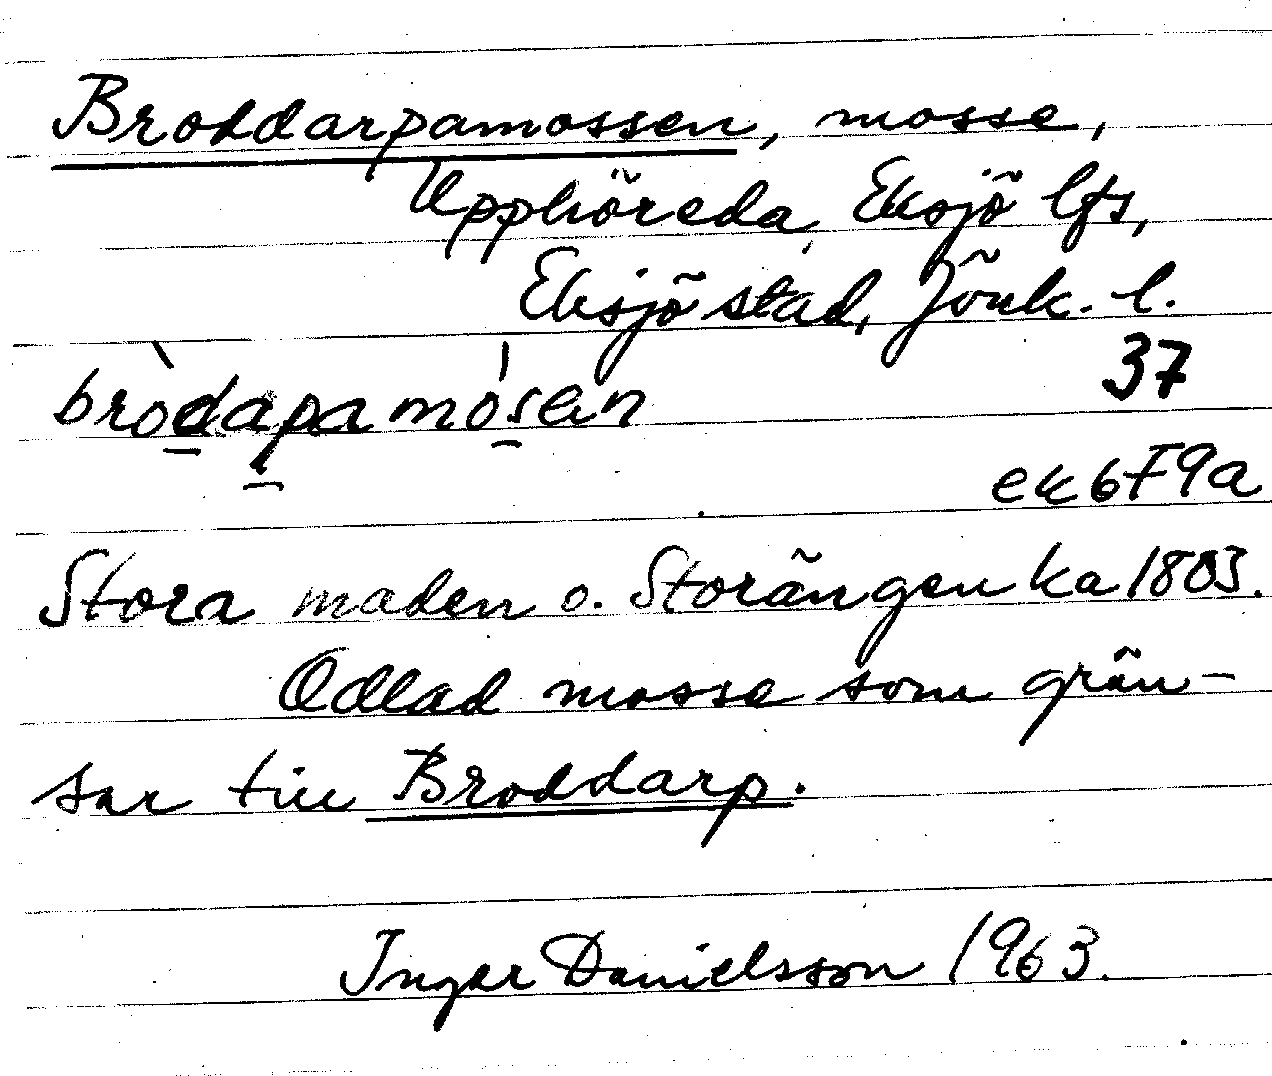 Broddarpamossen, mosse,
Upphöreda, Eksjö lfs,
Eksjö stad, Jönk. l.
bròdapamósen
37
ek 6F9a
Stora maden o. Storängen ka 1803.
Odlad mosse som grän-
sar till Broddarp.
Inger Danielsson 1963.